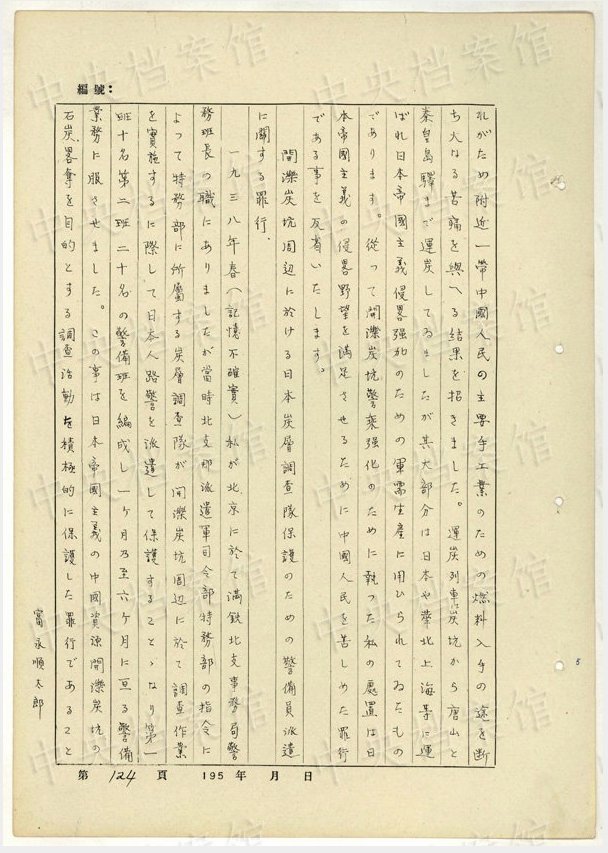 編號：
れがため附近一帶中國人民の主要手工業のための燃料入手の途を断
ち大なる苦痛を與へる結果を招きました。運炭列車は炭坑から唐山と
秦皇島驛まで運炭してゐましたが其大部分は日本や華北上海等に運
ばれ日本帝國主義侵畧強加のための軍需生産に用ひられてゐたもの
であります。從って開灤炭坑警衆強化のために執った私の處置は日
本帝國主義の侵畧野望を満足させるために中國人民を苦しめた罪行
である事を反省いたします。
開灤炭坑周辺に於ける日本炭層調査隊保護のための警備員派遣
に關する罪行.
一九三八年春（記憶不確實）私が北京に於て満鉄北支事務局警
務班長の職にありましたが當時北支那派遣軍司令部特務部の指令に
よって特務部に所屬する炭層調査隊が開灤炭坑周辺に於て調査作業
を實施するに際して日本人路警を派遣して保護することゝなり第一
班十名第二班二十名の警備班を編成し一ヶ月乃至六ヶ月に亘る警備
業務に服させました。この事は日本帝國主義の中國資源開灤炭坑の
石炭畧奪を目的とする調査活動を積極的に保護した罪行であること
富永順太郎
第 124 頁 195 年 月 日
5
中央档案馆